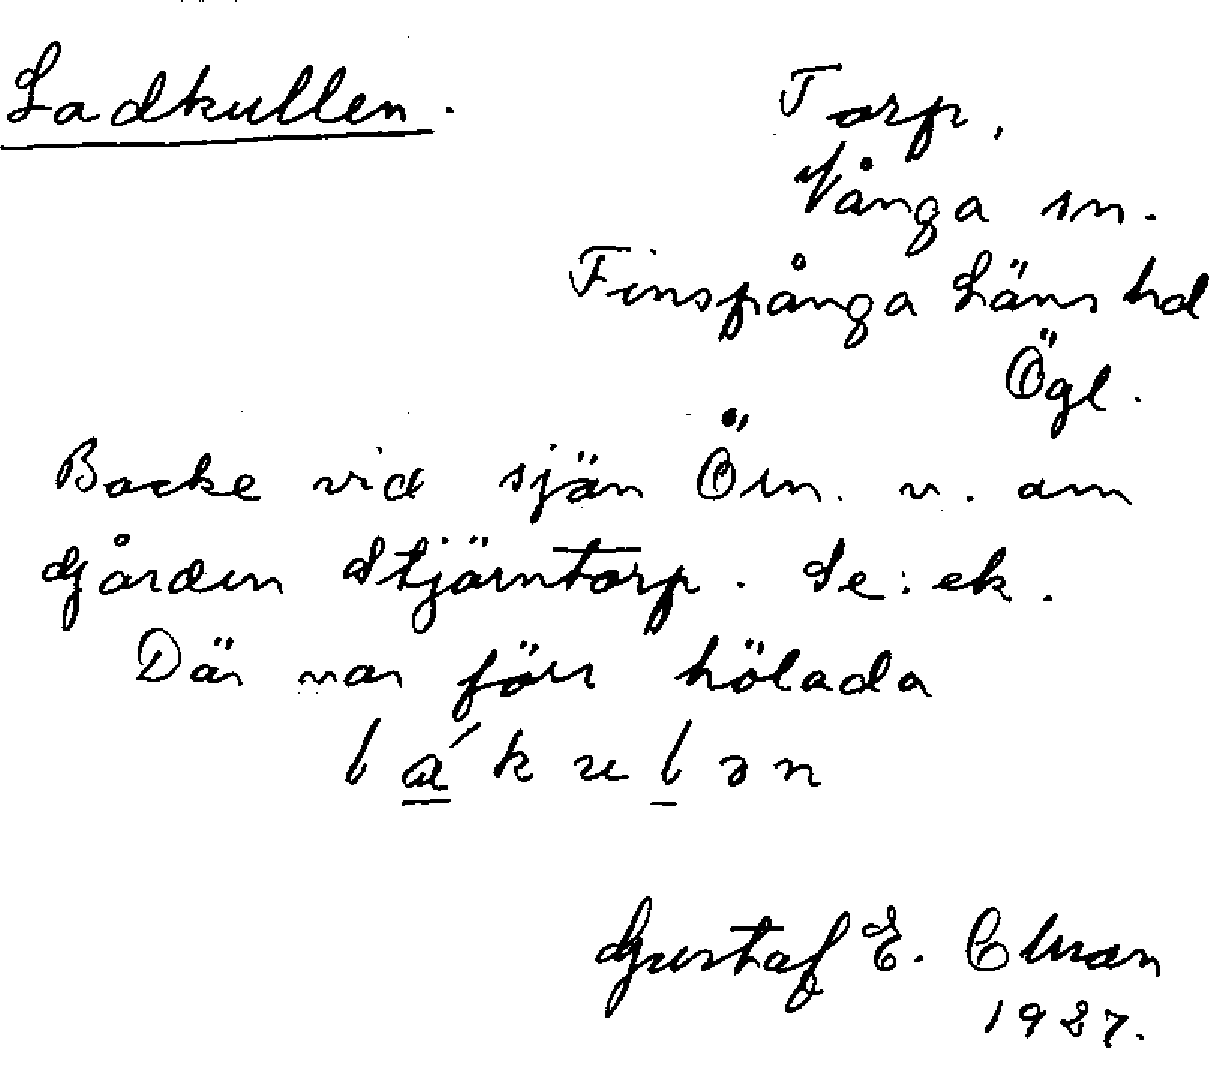 Ladkullen.
Torp,
Vånga sn.
Finspånga Läns hd
Ögl.
Backe vid sjön Ören. v. om
gården Stjärntorp. Se: ek.
Där var förr hölada
lákulən
Gustaf E.
1927.